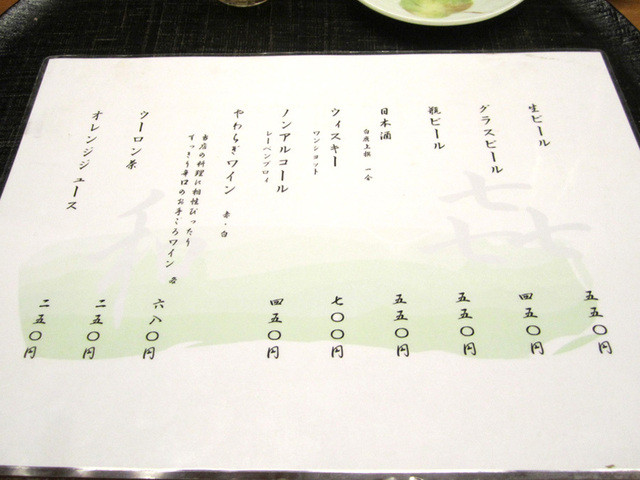 生ビール 五五〇円
グラスビール 四五〇円
瓶ビール 五五〇円
日本酒 五五〇円
白鹿上撰 一合
ウィスキー 七〇〇円
ワンショット
ノンアルコール 四五〇円
レーベンブロイ
やわらぎワイン 赤・白 六八〇円
当店の料理に相性ぴったり
すっきり辛口のお手ごろワイン
ウーロン茶 二五〇円
オレンジジュース 二五〇円
㐂
和